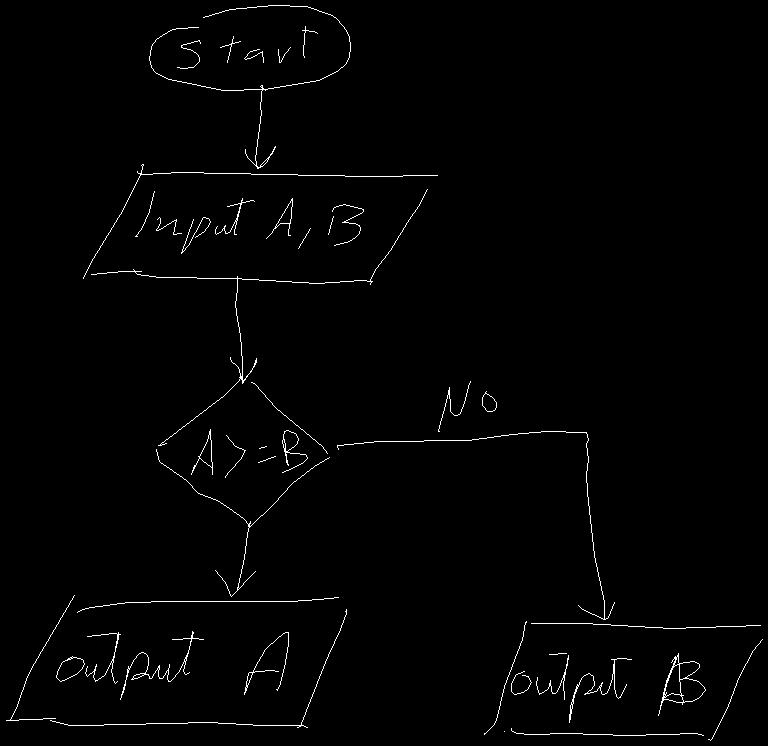 Start
Input A, B
A>=B
NO
output A
output B